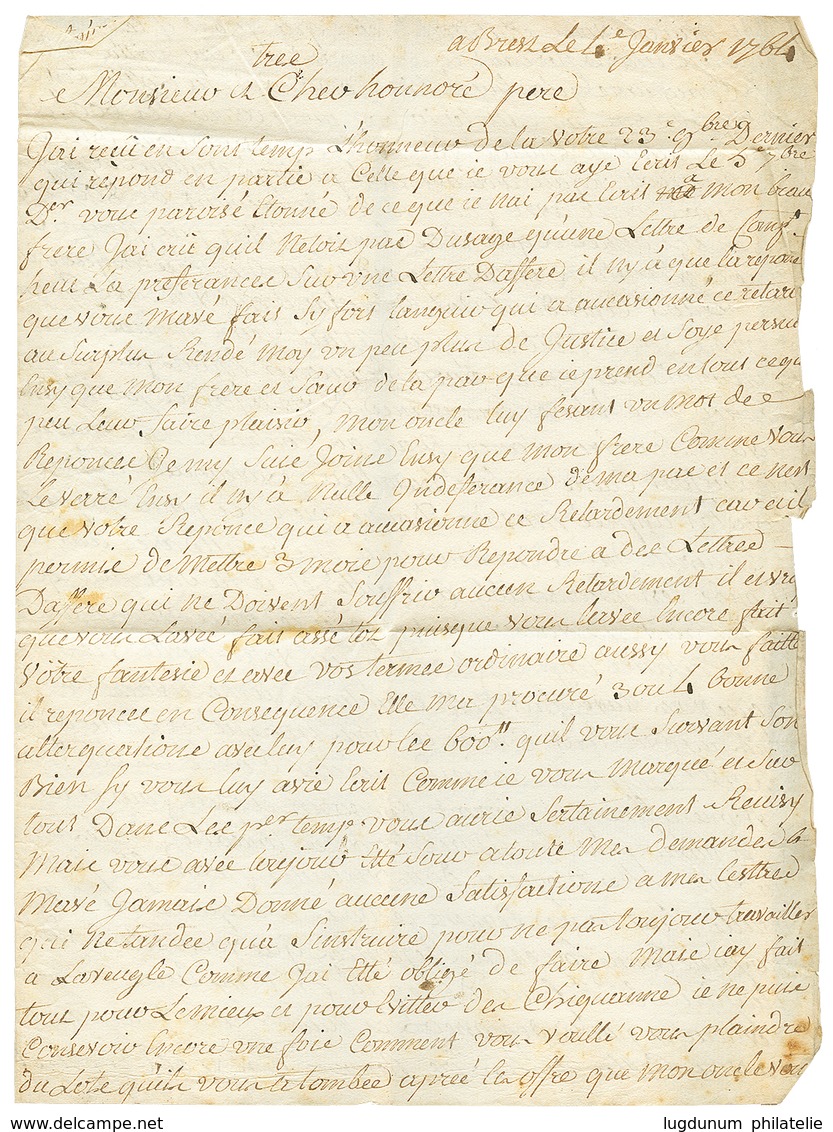 a Brest Le 4e Janvier 1764
tres
Monsieur et Cher honnoré pere
Jai recü en sont temp Lhonneur de la votre 23e 9bre Dernier
qui repond en partie a Celle que je vous aye Ecris Le 5e 7bre
Der vous paroisé Etonné de ce que je nai pas Ecris a mon beau
frere Jai crü quil Netois pas Dusage qu'une Lettre de
heut La preferances Sur vne Lettre Daffere il ny a que la repon
que vous mavé fait Sy fort languir qui a auccasionné ce retar
au Surplus Rendé moy vn peu plus de Justice et Soye persua
Ensy que mon frere et Sœur de la par que je prend en tout ce qu
peu Leur faire plaisir, mon oncle luy fesant vn mot de
Reponces Je my Suis Joins Ensy que mon frere Comme vous
Le verré Ensy il ny a Nulle Indeferance de ma par et ce nest
que votre Reponce qui a auccasionné ce Retardement car es il
permis de Mettre 3 mois pour Repondre a des Lettres
Daffere qui ne Doivent Souffrir aucun Retardement il es vrai
que vous Lavée fait assé tot puisque vous Lavée Encore fait a
votre fantesie et avec vos termes ordinaire aussy vous faitte
il reponces en Consequence Elle ma procuré 3 ou 4 bonne
alterquations avec luy pour les 600ll. quil vous Suivant Son
Bien Sy vous luy avié Ecris Comme je vous Marqué et Sur
tout Dans Les per temp vous aurié Sertainement Reuisy
Mais vous avée toujour Etté Sour a toute Mes demandes &
Mavé Jamais Donné aucune Satisfactions a mes Lesttres
qui Netandes qu'a Sinstruire pour ne pas toujour travailler
a Laveugle Comme Jai Etté obligé de faire Mais jay fait
tout pour Le mieux et pour Evitter des Chiquanne je ne puis
Consevoir Encore vne fois Comment vous voullé vous plaindre
du Lots quils vous es tombée aprés les offre que mon oncle vous
lugdunum philatelie